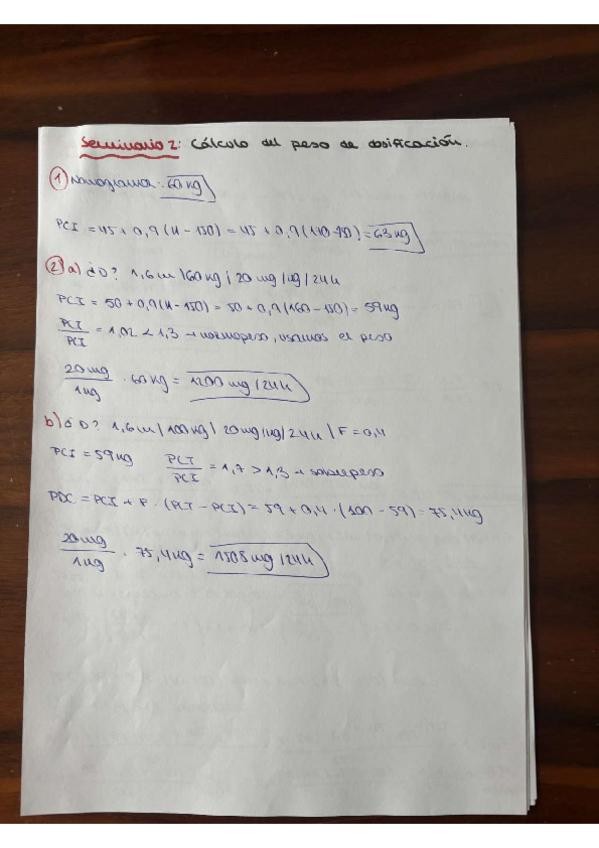 Seminario 2: Cálculo del peso de dosificación.
① Nomograma: 60 kg
PCI = 45 + 0,9 (H - 150) = 45 + 0,9 (170-150) = 63 kg
② a) ¿D? 1,6 m / 60 kg / 20 mg/kg/24h
PCI = 50 + 0,9 (H - 150) = 50 + 0,9 (160 - 150) = 59 kg
PCT/PCI = 1,02 < 1,3 → normopeso, usamos el peso
20 mg/1 kg · 60 kg = 1200 mg/24h
b) ¿D? 1,6 m / 100 kg / 20 mg/kg/24h / F = 0,4
PCI = 59 kg PCT/PCI = 1,7 > 1,3 → sobrepeso
PDC = PCI + F · (PCT - PCI) = 59 + 0,4 · (100 - 59) = 75,4 kg
20 mg/1 kg · 75,4 kg = 1508 mg/24h